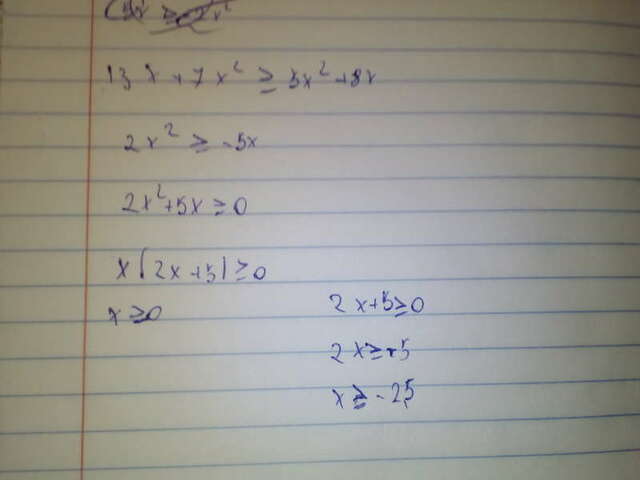 13x + 7x² ≥ 5x² + 8x
2x² ≥ -5x
2x² + 5x ≥ 0
x(2x + 5) ≥ 0
x ≥ 0 2x + 5 ≥ 0
2x ≥ -5
x ≥ -2,5